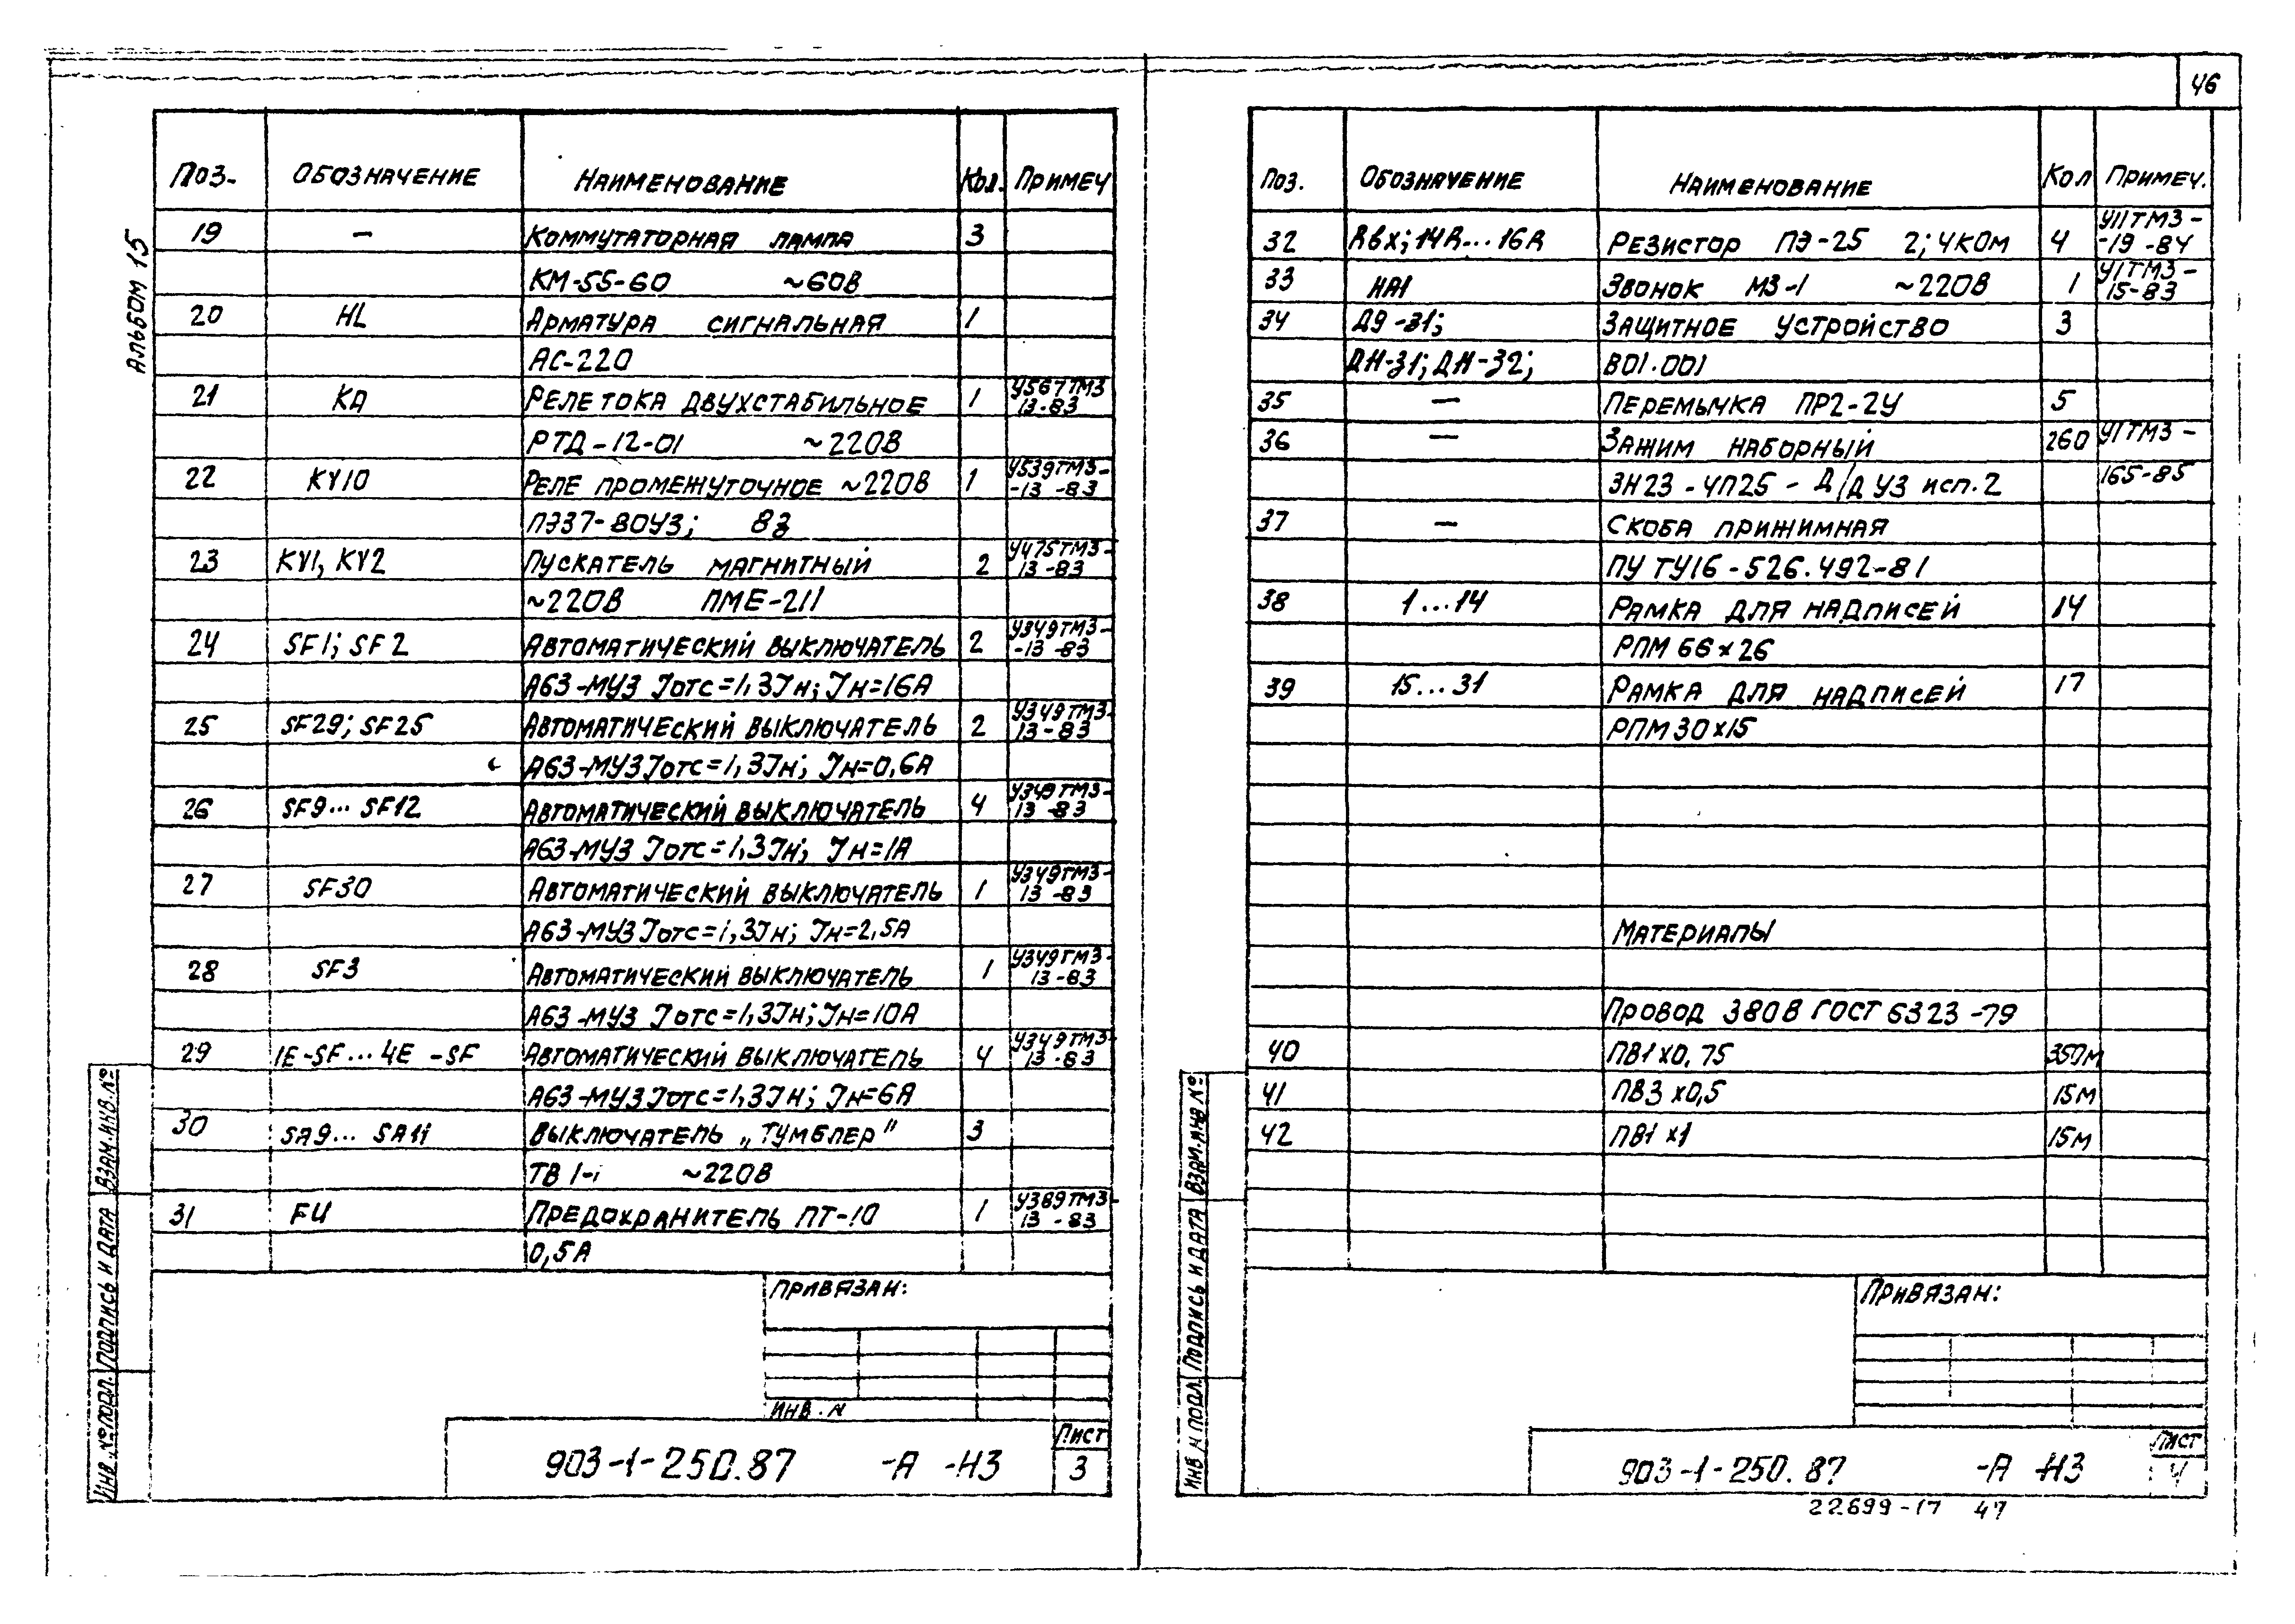 46
Альбом 15
Поз. Обозначение Наименование Кол. Примеч
19 — Коммутаторная лампа 3
КМ-55-60 ~60В
20 HL Арматура сигнальная 1
АС-220
21 КА Реле тока двухстабильное 1 У567ТМЗ 13-83
РТД-12-01 ~220В
22 KY10 Реле промежуточное ~220В 1 У539ТМЗ- -13 -83
ПЭ37-80У3; 8з
23 KY1, KY2 Пускатель магнитный 2 У475ТМЗ- 13 -83
~220В ПМЕ-211
24 SF1; SF2 Автоматический выключатель 2 У349ТМЗ- -13 -83
А63-МУ3 Jотс=1,3Jн; Jн=16А
25 SF29; SF25 Автоматический выключатель 2 У349ТМЗ- 13-83
А63-МУ3 Jотс=1,3Jн; Jн=0,6А
26 SF9... SF12 Автоматический выключатель 4 У349ТМЗ- 13 -83
А63-МУ3 Jотс=1,3Jн; Jн=1А
27 SF30 Автоматический выключатель 1 У349ТМЗ- 13 -83
А63-МУ3 Jотс=1,3Jн; Jн=2,5А
28 SF3 Автоматический выключатель 1 У349ТМЗ- 13-83
А63-МУ3 Jотс=1,3Jн; Jн=10А
29 1E-SF... 4E -SF Автоматический выключатель 4 У349ТМЗ- 13-83
А63-МУ3 Jотс=1,3Jн; Jн=6А
30 SA9... SA11 Выключатель „Тумблер" 3
ТВ 1-1 ~220В
31 FU Предохранитель ПТ-10 1 У389ТМЗ- 13 -83
0,5А
Привязан:
Инв. N
903-1-250.87 -А -Н3
Лист
3
Инв. № подл. Подпись и дата Взам. инв. №
Поз. Обозначение Наименование Кол Примеч.
32 Rвх; 14R...16R Резистор ПЭ-25 2; 4кОм 4 У11ТМЗ- -19 -84
33 НА1 Звонок МЗ-1 ~220В 1 У1ТМЗ- 15-83
34 Д9-31; Защитное устройство 3
ДН-31; ДН-32; В01.001
35 — Перемычка ПР2-2У 5
36 — Зажим наборный 260 У1ТМЗ-
ЗН23-4П25-Д/Д У3 исп.2 165-85
37 — Скоба прижимная
ПУ ТУ16-526.492-81
38 1...14 Рамка для надписей 14
РПМ 66×26
39 15...31 Рамка для надписей 17
РПМ 30×15
Материалы
Провод 380В ГОСТ 6323-79
40 ПВ1×0,75 350м
41 ПВ3×0,5 15м
42 ПВ1×1 15м
Привязан:
903-1-250.87 -А -Н3
Лист
4
Инв. N подл. Подпись и дата Взам. инв №
22699-17 47